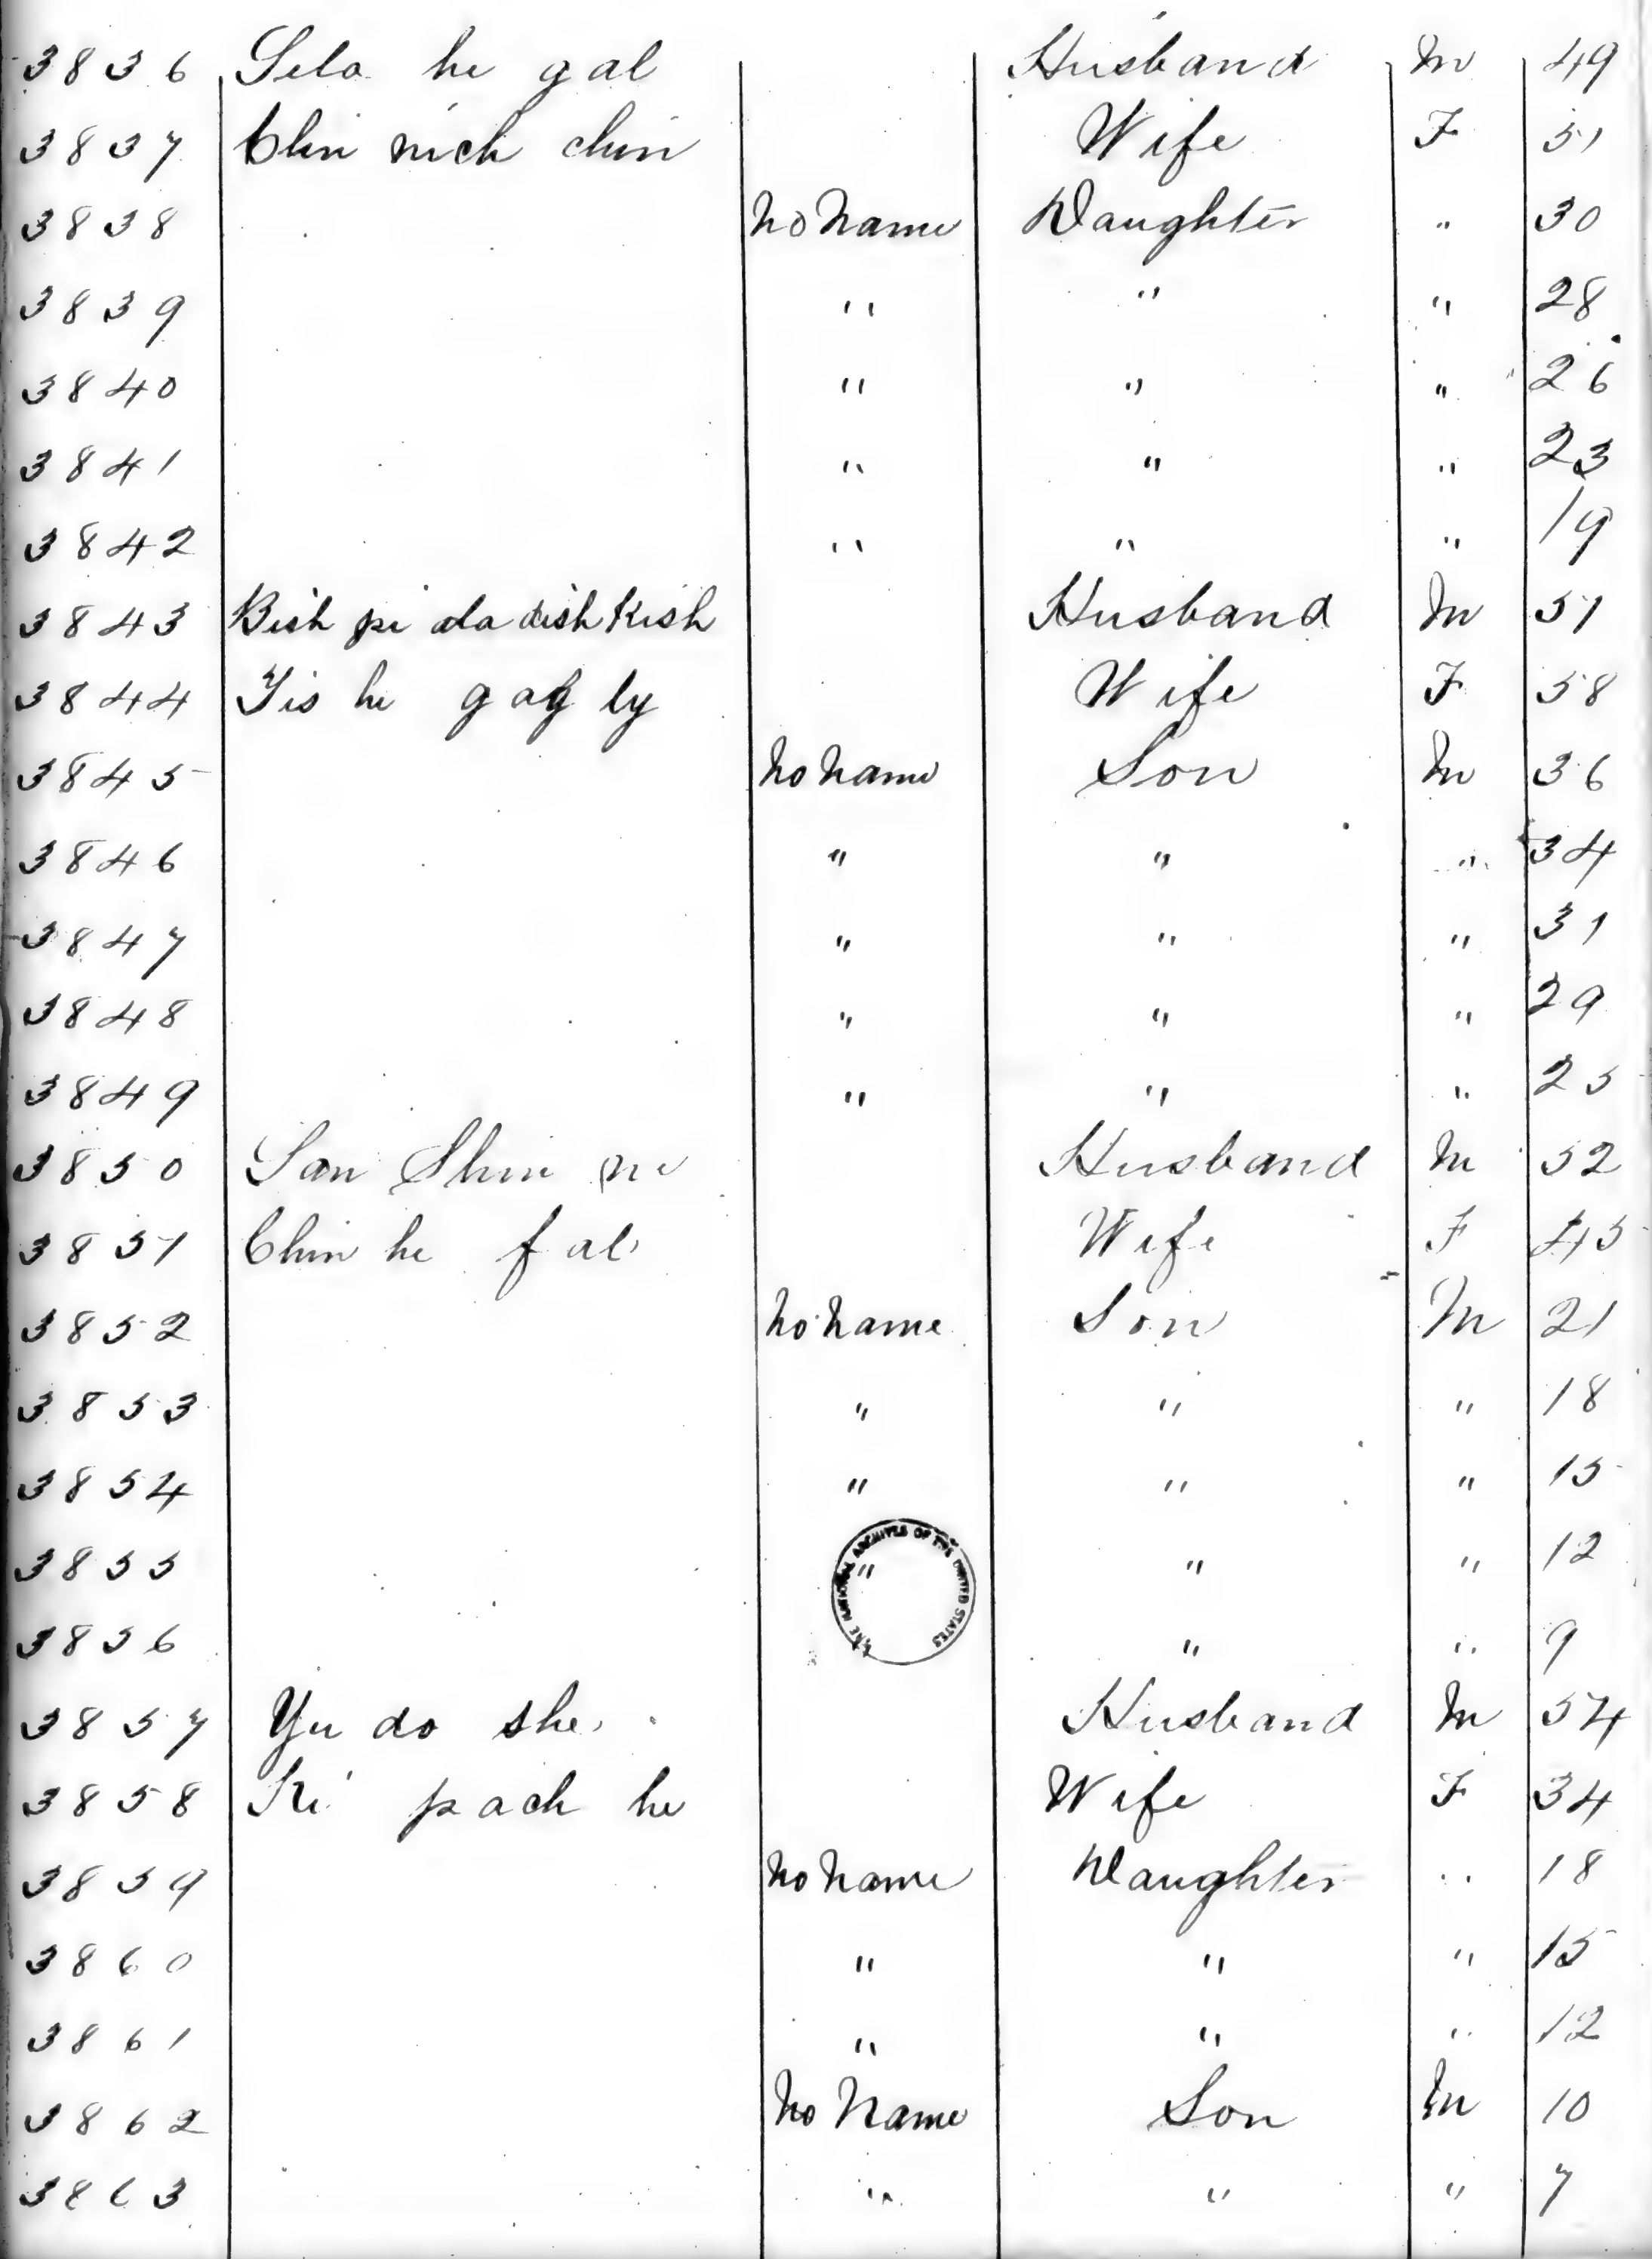 3836 Sela he gal Husband M 49
3837 Chin nich chin Wife F 51
3838 No Name Daughter " 30
3839 " " " 28
3840 " " " 26
3841 " " " 23
3842 " " " 19
3843 Bish pi da dish Kish Husband M 51
3844 Yis he gag ly Wife F 58
3845 No Name Son M 36
3846 " " " 34
3847 " " " 31
3848 " " " 29
3849 " " " 25
3850 San Shin ne Husband M 52
3851 Chin he fal Wife F 45
3852 No Name Son M 21
3853 " " " 18
3854 " " " 15
3855 " " " 12
THE NATIONAL ARCHIVES OF THE UNITED STATES
3856 " " 9
3857 Yu do she Husband M 54
3858 Ki pach he Wife F 34
3859 No Name Daughter " 18
3860 " " " 15
3861 " " " 12
3862 No Name Son M 10
3863 " " " 7